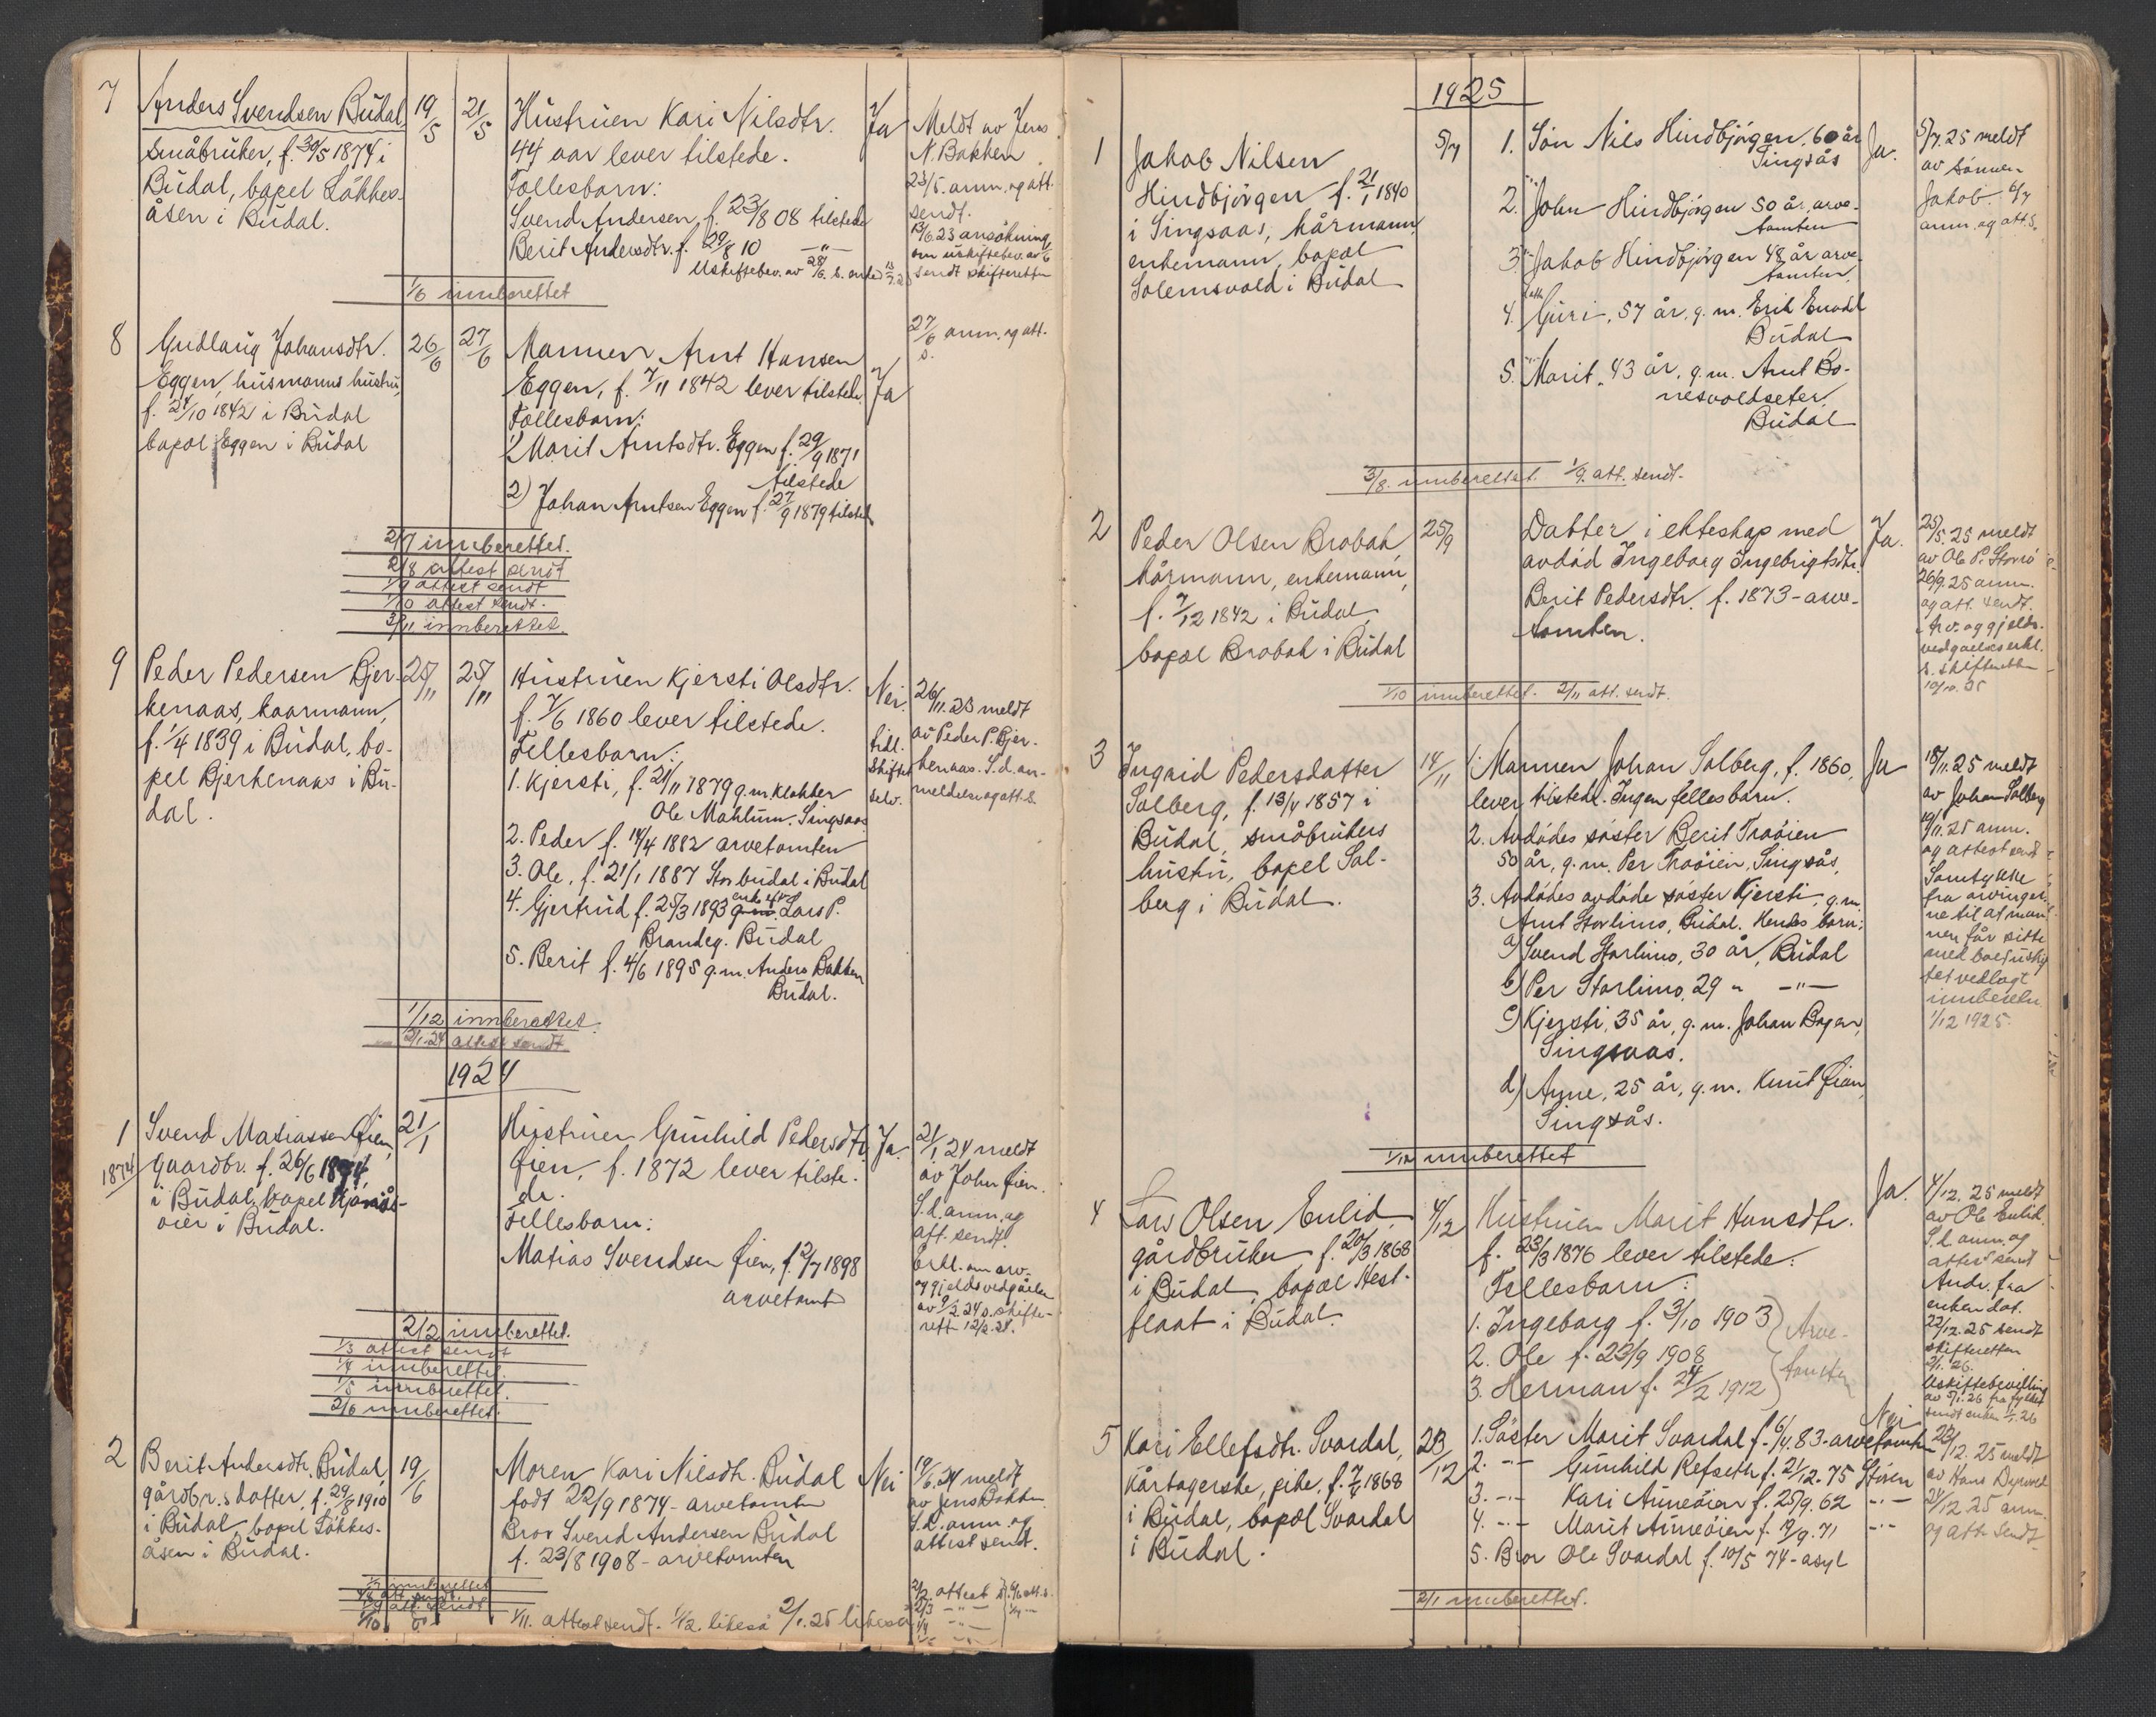 7
Anders Svendsen Budal
småbruker, f. 30/5 1874 i
Budal, bopel Løkkes-
åsen i Budal.
19/5
21/5
Hustruen Kari Nilsdtr.
44 aar lever tilstede.
Fællesbarn:
Svend Andersen, f. 23/8 08 tilstede
Berit Andersdtr. f. 29/8 10 —"—
Uskiftebev. av 28/6 s. enke
Ja
Meldt av Jens
N. Bakken
23/5. anm. og att.
sendt.
13/6.23 ansökning
om uskiftebev. av
sendt skifteretten
1/6 innberettet
8
Gudlaug Johansdtr.
Eggen, husmanns hustru,
f. 24/10 1842 i Budal
bopæl Eggen i Budal
26/6
27/6
Mannen Arnt Hansen
Eggen, f. 7/11 1842 lever tilstede.
Fællesbarn:
1) Marit Arntsdtr. Eggen f. 29/9 1871
tilstede
2) Johan Arntsen Eggen f. 27/9 1879 tilstede
Ja
27/6 anm. og att.
s.
2/7 innberettet.
2/8 attest sendt
1/9 attest sendt
1/10 attest sendt.
2/11 innberettet.
9
Peder Pedersen Bjer-
kenaas, kaarmann,
f. 1/4 1839 i Budal, bo-
pel Bjerkenaas i Bu-
dal.
25/11
25/11
Hustruen Kjersti Olsdtr.
f. 7/6 1860 lever tilstede.
Fellesbarn:
1. Kjersti, f. 21/11 1879 g.m. klokker
Ole Mahlum. Singsaas
2. Peder f. 14/4 1882 arvetomten
3. Ole, f. 21/1 1887 Storbudal i Budal
4. Gjertrud f. 25/3 1893 enke efter Lars P.
Brandeg. Budal
5. Berit f. 4/6 1895 g.m. Anders Bakken
Budal.
Nei.
skifter
selv.
26/11.23 meldt
av Peder P. Bjer-
kenaas. S.d. an-
meldelse og att. s.
1/12 innberettet.
2/1-24 attest sendt
1924
1
1874
Svend Matiassen Øien,
gaardbr. f. 26/6 1874,
i Budal, bopel
øien i Budal.
21/1
Hustruen Gunhild Pedersdtr.
Øien, f. 1872 lever tilste-
de.
Fellesbarn:
Matias Svendsen Øien, f. 2/7 1898
arvetomt
Ja.
21/1 24 meldt
av John Øien.
S.d. anm. og
att. sendt.
Erkl. om arv-
og gjeldsvedgåelse
av 9/2 24 s. skifte-
rett 12/2.24.
2/2 innberettet.
1/3 attest sendt
1/4 innberettet.
1/5 innberettet.
2/6 innberettet.
2
Berit Andersdtr. Budal,
gårdbr.s datter, f. 29/8 1910
i Budal, bopel Løkkes-
åsen i Budal.
19/6
Moren Kari Nilsdtr. Budal
født 22/9 1874 - arvetomten
Bror Svend Andersen Budal
f. 23/8 1908 - arvetomten
Nei
19/6.24 meldt
av Jens Bakken.
S.d. anm. og
attest sendt.
1/7 innberettet
1/8 att. sendt.
1/9 att. sendt
1/10
1/11. attest sendt. 1/12. likeså 2/1.25 likeså
2/2. attest s.
2/3 —"—
1/4 —"—
1925
1
Jakob Nilsen
Hindbjørgen f. 21/1 1840
i Singsaas, kårmann,
enkemann, bopæl
Solemsvold i Budal
5/7
1. Søn Nils Hindbjørgen, 60 år
Singsås
2. " John Hindbjørgen 50 år, arve-
tomten
3. " Jakob Hindbjørgen 48 år arve-
tomten.
4. datt. Guri, 57 år, g.m. Erik Enodd
Budal
5. " Marit, 43 år, g.m. Arnt Bo-
nesvoldseter.
Budal
Ja.
5/7.25 meldt
av sønnen
Jakob. 6/7
anm. og att. s.
3/8. innberettet. 1/9. att. sendt.
2
Peder Olsen Brobak,
kårmann, enkemann,
f. 7/12 1842 i Budal,
bopæl Brobak i Budal
25/9
Datter i ekteskap med
avdød Ingeborg Ingebrigtsdtr.
Berit Pedersdtr. f. 1873 - arve-
tomten.
Ja.
25/9.25 meldt
av Ole P. Storrø
26/9.25 anm.
og att. sendt.
Arv. og gjelds-
vedgåelseserkl.
s. skifteretten
10/10.25
1/10 innberettet. 2/11 att. sendt.
3
Ingrid Pedersdatter
Solberg, f. 13/4 1857 i
Budal, småbrukers
hustru, bopel Sol-
berg i Budal.
14/11
1. Mannen Johan Solberg, f. 1860,
lever tilstede. Ingen fellesbarn.
2. Avdødes søster Berit Traøien
50 år, g.m. Per Traøien, Singsås,
3. Avdødes avdøde søster Kjersti, g.m.
Arnt Storlimo, Budal. Hendes barn:
a) Svend Storlimo, 30 år, Budal
b) Per Storlimo, 29 " —"—
c) Kjersti, 35 år, g.m. Johan Bogen,
Singsaas.
d) Anne, 25 år, g.m. Knut Øian,
Singsås.
Ja
18/11.25 meldt
av Johan Solberg
19/11.25 anm.
og attest sendt
Samtykke
fra arvinger-
ne til at man-
nen får sitte
med boet uskif-
tet vedlagt
innberetn.
1/12 1925.
1/12 innberettet
4
Lars Olsen Enlid,
gårdbruker f. 20/3 1868
i Budal, bopæl Hest-
flaat i Budal.
4/12
Hustruen Marit Hansdtr.
f. 23/3 1876 lever tilstede.
Fellesbarn:
1. Ingeborg f. 3/10 1903
2. Ole f. 23/9 1908
3. Herman f. 24/2 1912
Arve-
tomten
Ja.
4/12. 25 meldt
av Ole Enlid.
S.d. anm. og
attest sendt
Andr. fra
enken dat.
22/12.25 sendt
skifteretten
2/1.26.
Uskiftebevilling
av 5/1.26 fra fylket
sendt enken
5
Kari Ellefsdtr. Svardal,
kårtagerske, pike, f. 7/4 1868
i Budal, bopæl Svardal
i Budal.
23/12
1. Søster Marit Svardal f. 6/4.83 - arvetomten
2. —"— Gunhild Refseth f. 21/12.75 Støren
3. —"— Kari Aunøien f. 25/9.62 —"—
4. —"— Marit Aunøien f. 19/9.71 —"—
5. Bror Ole Svardal f. 10/5 74 - asyl
Nei
23/12. 25 meldt
av Hans
24/12 25 anm.
og att. sendt
2/1 innberettet.